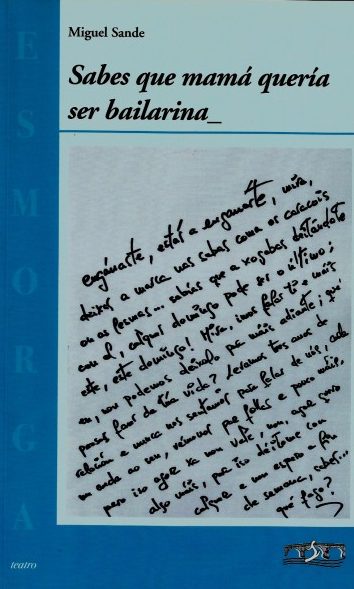 Miguel Sande
Sabes que mamá quería
ser bailarina_
ESMORGA
engánaste, estás a enganarte, mira,
deixas a marca nas sabas coma os caracois
ou as lesmas... sabías que a xogabas deitándote
con el, calquer domingo pode ser o último;
este, este domingo! Mira, imos falar ti e máis
eu, non podemos deixalo pra máis adiante; que
pensas facer da túa vida? Levamos tres anos de
relación e nunca nos sentamos pra falar de nós, cada
un anda ao seu, vémonos pra follar e pouco máis,
pero iso agora xa non vale, non, agora quero
algo máis, pra iso déitome con
calquera e non espero a fin
de semana, sabes...
qué fago?
teatro